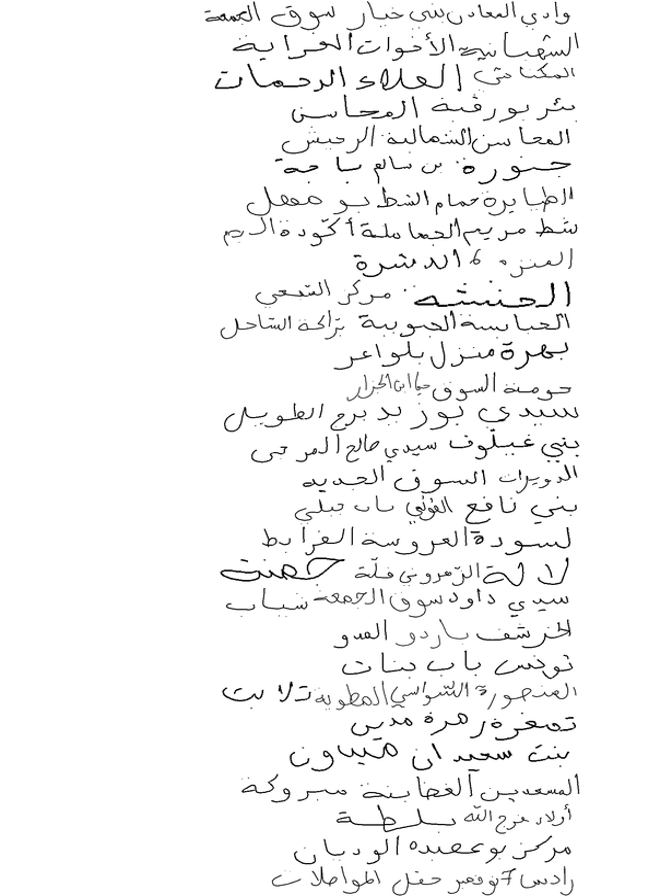 وادي المعادن بني خيار سوق الجمعة
الشهبانية الأخوات الحراية
المكناسي العلاء الرحمات
بئر بورقبة المحاسن
المحاسن الشمالية الرحيش
جنورة بن سالم باجة
الطبايرة حمام الشط
شط مريم الجماملة أكودة الريم
المنزه 6 الدشرة
الحنشه مركز الشعبي
العبابسة الجنوبية براكة الساحل
بهرة منزل بلواعر
حومة السوق حي ابن الجزار
سيدي بوزيد برج الطويل
بني غيلوف سيدي صالح
الدويرات السوق الجديد
بني نافع باب جبلي
لسودة العروسة الغرابط
لالة
سيدي داود سوق الجمعة شباب
الخرشف باردو
تونس باب بنات
المنصورة السواسي المطوية تلابت
تمغزة زهرة مدين
بنت سعيدان
المسعدين الغضابنة مبروكة
أولاد فرج الله بلطة
مركز بوعصيده الوديان
رادس 7 نوفمبر حفل المواصلات